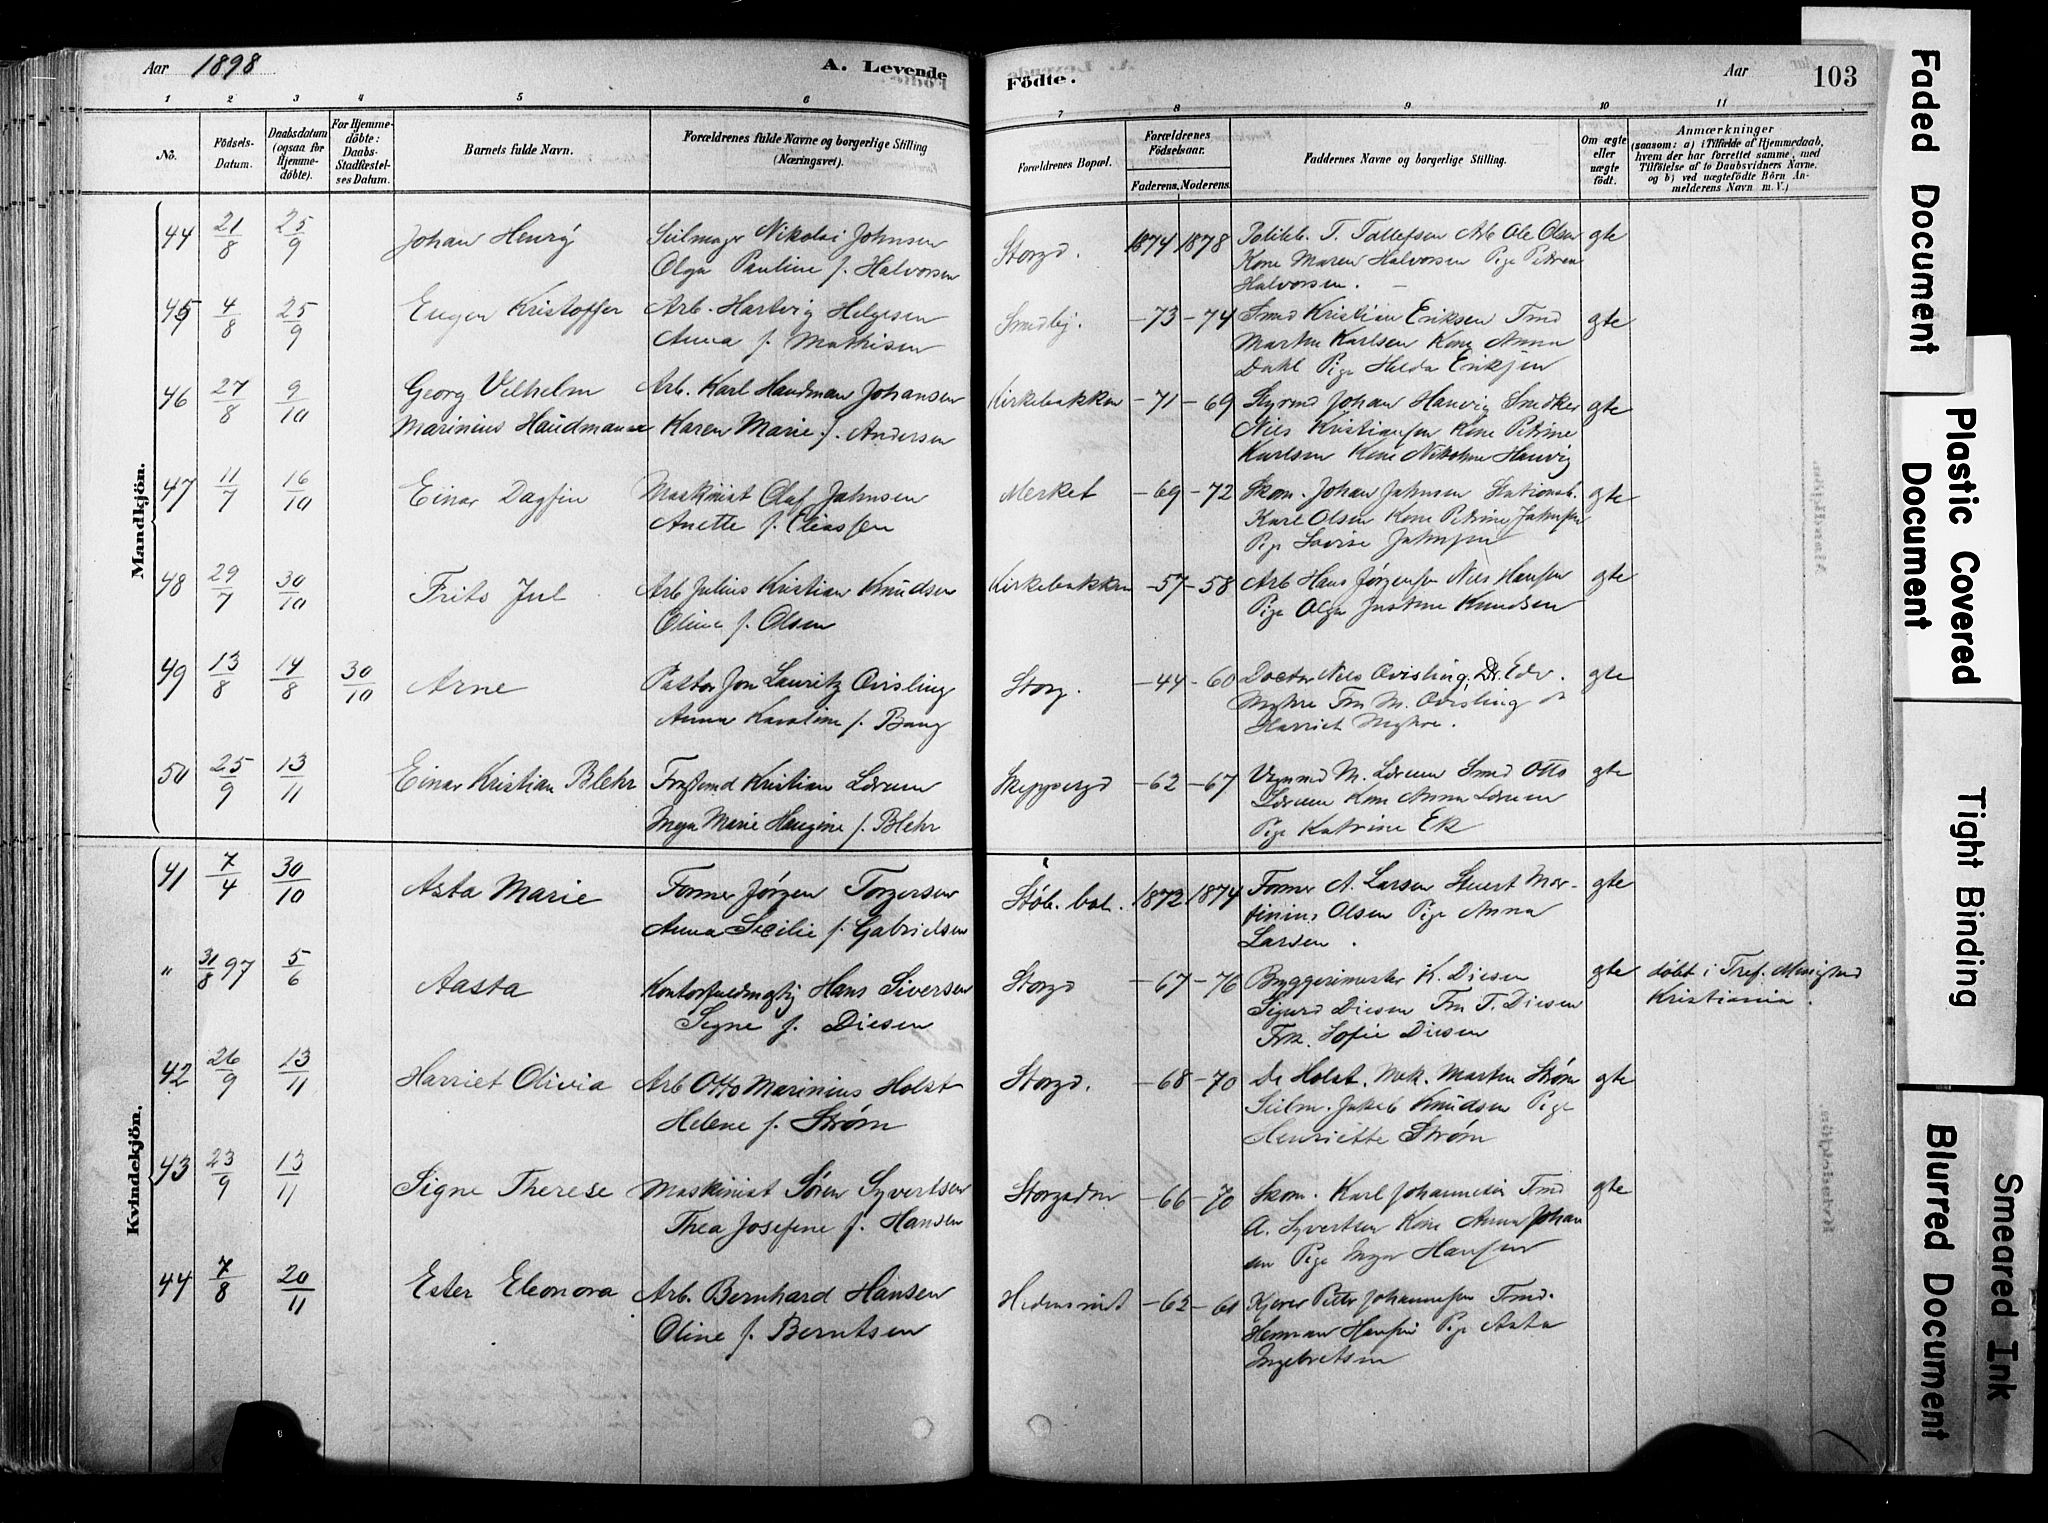 Aar 1898
A. Levende
Födte.
Aar
103
1 2 3 4 5 6 7 8 9 10 11
No.
Födsels-
Datum.
Daabsdatum
(ogsaa for
Hjemme-
döbte).
For Hjemme-
döbte:
Daabs-
Stadfæstel-
ses Datum.
Barnets fulde Navn.
Forældrenes fulde Navne og borgerlige Stilling
(Næringsvei).
Forældrenes Bopæl.
Forældrenes
Födselsaar.
Faderens. Moderens.
Faddernes Navne og borgerlige Stilling.
Om ægte
eller
uægte
födt.
Anmærkninger
(saasom: a) i Tilfælde af Hjemmedaab,
hvem der har forrettet samme, med
Tilföielse af to Daabsvidners Navne.
og b) ved uægtefödte Börn An-
melderens Navn m. V.)
Mandkjön.
44 21/8 25/9 Johan Henry Seilmager Nikolai Johnsen Storgd. 1874 1878 T. Tallefsen Arb Ole Olsen gte
Olga Pauline f. Halvorsen Kone Maren Halvorsen Pige Petrea
Halvorsen.
45 4/8 25/9 Eugen Kristoffer Arb. Hartvig Helgesen Smedbj. -73 -74 Smed Kristian Eriksen Tmd gte
Anna f. Mathisen Martin Karlsen Kone Anna
Dahl Pige Hulda Eriksen
46 27/8 9/10 Georg Vilhelm Arb. Karl Haudman Johansen Kirkebakken -71 -69 Styrmd Johan Hauvig Snedker gte
Marinius Haudmann Karen Marie f. Andersen Niels Kristiansen Kone Petrine
Karlsen Kone Nikoline Hauvig
47 11/7 16/10 Einar Dagfin Maskinist Olaf Jahnsen Merket -69 -72 Skom. Johan Jahnsen Stationsb. gte
Anette f. Eliassen Karl Olsen Kone Petrine Jahnsen
Pige Lovise Jahnsen
48 29/7 30/10 Frits Jul Arb Julius Kristian Knudsen Kirkebakken -57 -58 Arb Hans Jørgensen Nils Hansen gte
Oline f. Olsen Pige Olga Justine Knudsen
49 13/8 14/8 30/10 Arne Pastor Jon Lauritz Qvisling Storg. -44 -60 Doctor Nils Qvisling, Dr. Edv. gte
Anna Karoline f. Bang Myhre Fru M. Qvisling
Harriet Myhre.
50 25/9 13/11 Einar Kristian Blehr Kristian Lorum Skippergd -62 -67 M. Lorum Smed Otto gte
Inga Marie Haugine f. Blehr Lorum Kone Anna Lorum
Pige Katrine Ek
Kvindekjön.
41 7/4 30/10 Asta Marie Former Jørgen Torgersen Støb. bol. 1872 1874 Former A. Larsen Stuert Mar- gte
Anna Secilie f. Gabrielsen tinius Olsen Pige Anna
Larsen.
" 31/8 97 5/6 Aasta Kontorfuldmægtig Hans Siversen Storgd -67 -76 Byggerimester K. Diesen gte døbt i Tref. Menighed
Signe f. Diesen Sigurd Diesen Fru T. Diesen Kristiania.
Frk. Sofie Diesen
42 26/9 13/11 Harriet Olivia Arb Otto Marinius Holst Storgd. -68 -70 De Holst. Mek. Martin Strøm gte
Helene f. Strøm Seilm. Jakob Knudsen Pige
Henriette Strøm
43 23/9 13/11 Signe Therese Maskinist Søren Syvertsen Storgaden -66 -70 Skom. Karl Johannesen Tmd gte
Thea Josefine f. Hansen A. Syvertsen Kone Anna Johan
sen Pige Inga Hansen
44 7/8 20/11 Ester Eleonora Arb. Bernhard Hansen -62 Peter Johannesen Tmd.
Oline f. Berntsen Herman Hansen Pige Aasta
Ingebretsen
Faded Document
Plastic Covered
Document
Tight Binding
Blurred Document
Smeared Ink